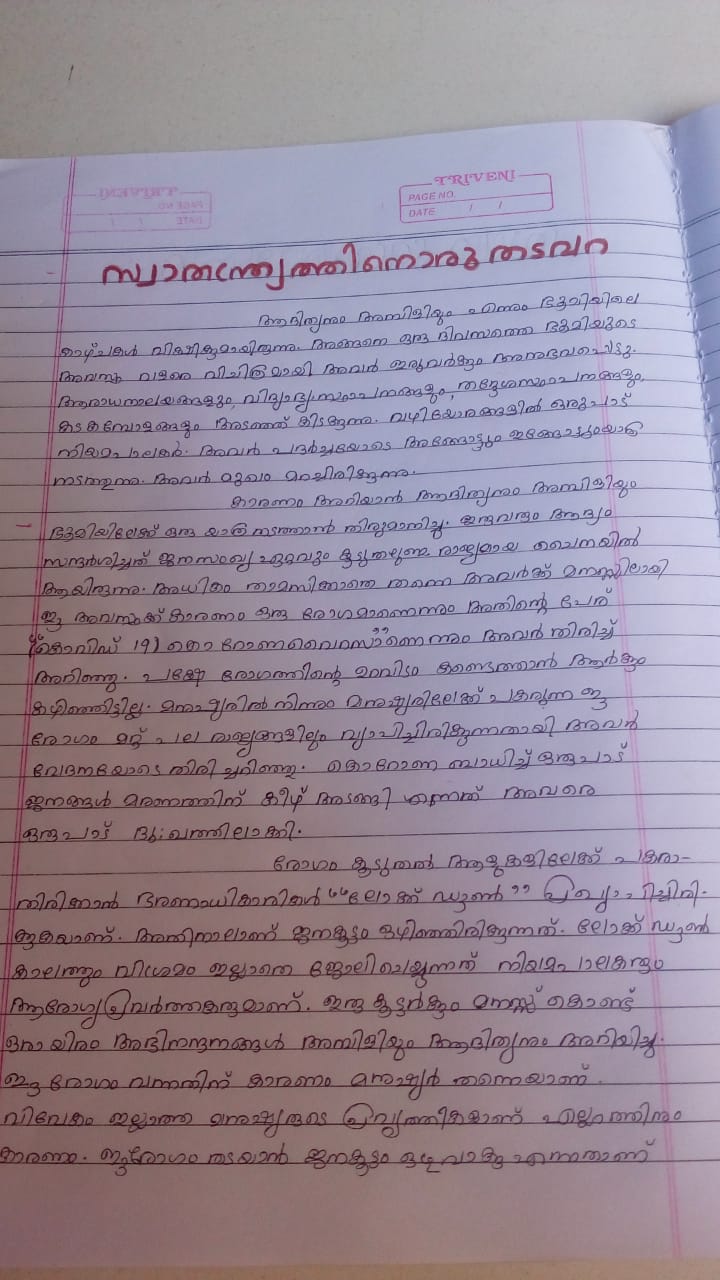 TRIVENI
PAGE NO.
DATE / /
സ്വാതന്ത്ര്യത്തിനൊരു തടവറ
ആദിത്യനും അമ്പിളിയും എന്നും ഭൂമിയിലെ
കാഴ്ചകൾ വീക്ഷിക്കുമായിരുന്നു. അങ്ങനെ ഒരു ദിവസത്തെ ഭൂമിയുടെ
അവസ്ഥ വളരെ വിചിത്രമായി അവർ ഇരുവർക്കും അനുഭവപ്പെട്ടു.
ആരാധനാലയങ്ങളും, വിദ്യാഭ്യാസസ്ഥാപനങ്ങളും, തദ്ദേശസ്ഥാപനങ്ങളും,
കടകമ്പോളങ്ങളും അടഞ്ഞ് കിടക്കുന്നു. വഴിയോരങ്ങളിൽ ഒരുപാട്
നിയമപാലകർ. അവർ പദർച്ചയോടെ അങ്ങോട്ടും ഇങ്ങോട്ടുംയാത്ര
നടത്തുന്നു. അവർ മുഖം മറച്ചിരിക്കുന്നു.
കാരണം അറിയാൻ ആദിത്യനും അമ്പിളിയും
ഭൂമിയിലേക്ക് ഒരു യാത്ര നടത്താൻ തീരുമാനിച്ചു. ഇരുവരും ആദ്യം
സന്ദർശിച്ചത് ജനസംഖ്യ ഏറ്റവും കൂടുതലുണ്ട രാജ്യമായ ചൈനയിൽ
ആയിരുന്നു. അധികം താമസിക്കാതെ തന്നെ അവർക്ക് മനസ്സിലായി
ഈ അവസ്ഥക്ക് കാരണം ഒരു രോഗമാണെന്നും അതിന്റെ പേര്
“(കൊവിഡ് 19) കൊറോണവൈറസാ”ണെന്നും അവർ തിരിച്ച്
അറിഞ്ഞു. പക്ഷേ രോഗത്തിന്റെ ഉറവിടം കണ്ടെത്താൻ ആർക്കും
കഴിഞ്ഞിട്ടില്ല. മനുഷ്യരിൽ നിന്നും മനുഷ്യരിലേക്ക് പകരുന്ന ഈ
രോഗം മറ്റ് പല രാജ്യങ്ങളിലും വ്യാപിച്ചിരിക്കുന്നതായി അവർ
വേദനയോടെ തിരിച്ചറിഞ്ഞു. കൊറോണ ബാധിച്ച് ഒരുപാട്
ജനങ്ങൾ മരണത്തിന് കീഴ് അടങ്ങി എന്നത് അവരെ
ഒരുപാട് ദുഃഖത്തിലാക്കി.
രോഗം കൂടുതൽ ആളുകളിലേക്ക് പകരാ-
തിരിക്കാൻ ഭരണാധികാരികൾ “ലോക്ക് ഡൗൺ” പ്രഖ്യാപിച്ചിരി-
ക്കുകയാണ്. അതിനാലാണ് ജനകൂട്ടം ഒഴിഞ്ഞിരിക്കുന്നത്. ലോക്ക് ഡൗൺ
കാലത്തും വിശ്രമം ഇല്ലാതെ ജോലിചെയ്യുന്നത് നിയമപാലകരും
ആരോഗ്യപ്രവർത്തകരുമാണ്. ഇരു കൂട്ടർക്കും മനസ്സ് കൊണ്ട്
ഒരായിരം അഭിനന്ദനങ്ങൾ അമ്പിളിയും ആദിത്യനും അറിയിച്ചു.
ഈ രോഗം വന്നതിന് കാരണം മനുഷ്യർ തന്നെയാണ്.
വിവേകം ഇല്ലാത്ത മനുഷ്യരുടെ പ്രവൃത്തികളാണ് എല്ലത്തിനും
കാരണം. ഈരോഗം തടയാൻ ജനകൂട്ടം ഒഴിവാക്കു എന്നതാണ്